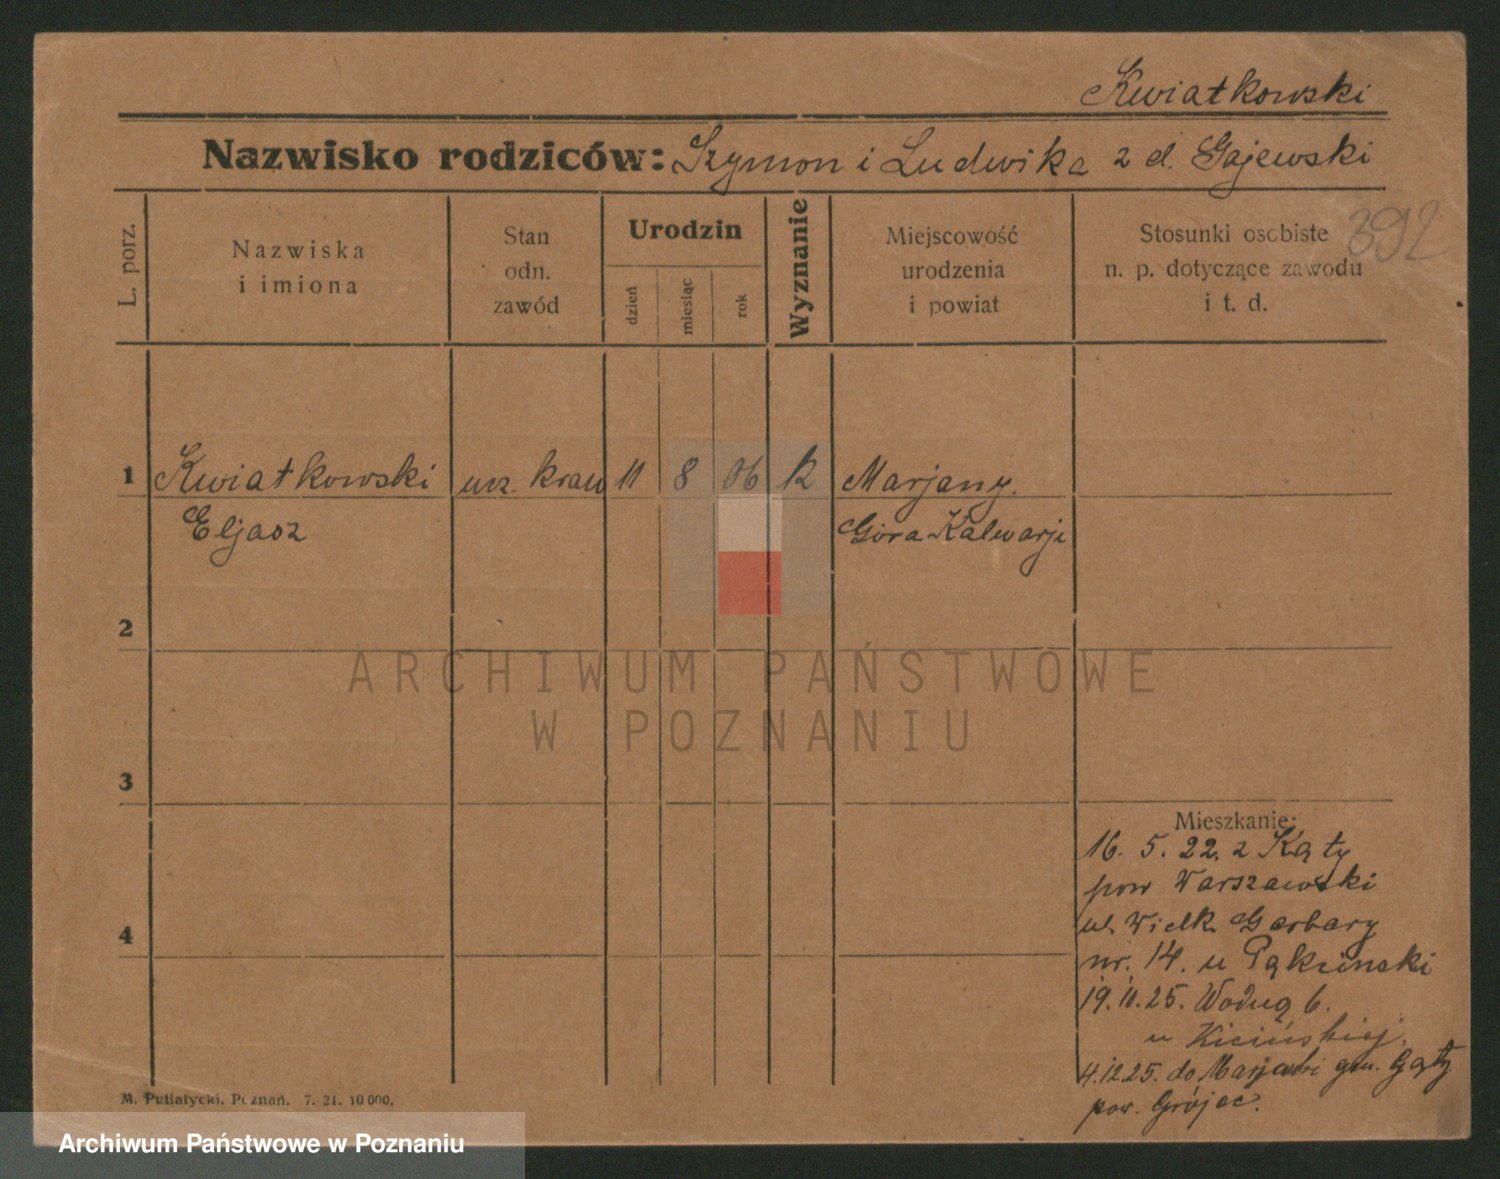 Kwiatkowski
Nazwisko rodziców: Szymon i Ludwika z d. Gajewski
392
L. porz.
Nazwiska
i imiona
Stan
odn.
zawód
Urodzin
dzień
miesiąc
rok
Wyznanie
Miejscowość
urodzenia
i powiat
Stosunki osobiste
n. p. dotyczące zawodu
i t. d.
1 Kwiatkowski ucz. kraw 11 8 06 k Marjany.
Eljasz Góra-Kalwarji
2
3
4
Mieszkanie:
16. 5. 22. z Kąty
pow Warszawski
ul. Wielk. Garbary
nr. 14. u
19. 11. 25. Wodną 6.
u Kicińskiej.
4.12.25. do gm. Gąty
pow. Grójec.
M. Putiatycki. Poznań. 7. 21. 10 000.
ARCHIWUM PAŃSTWOWE
W POZNANIU
Archiwum Państwowe w Poznaniu